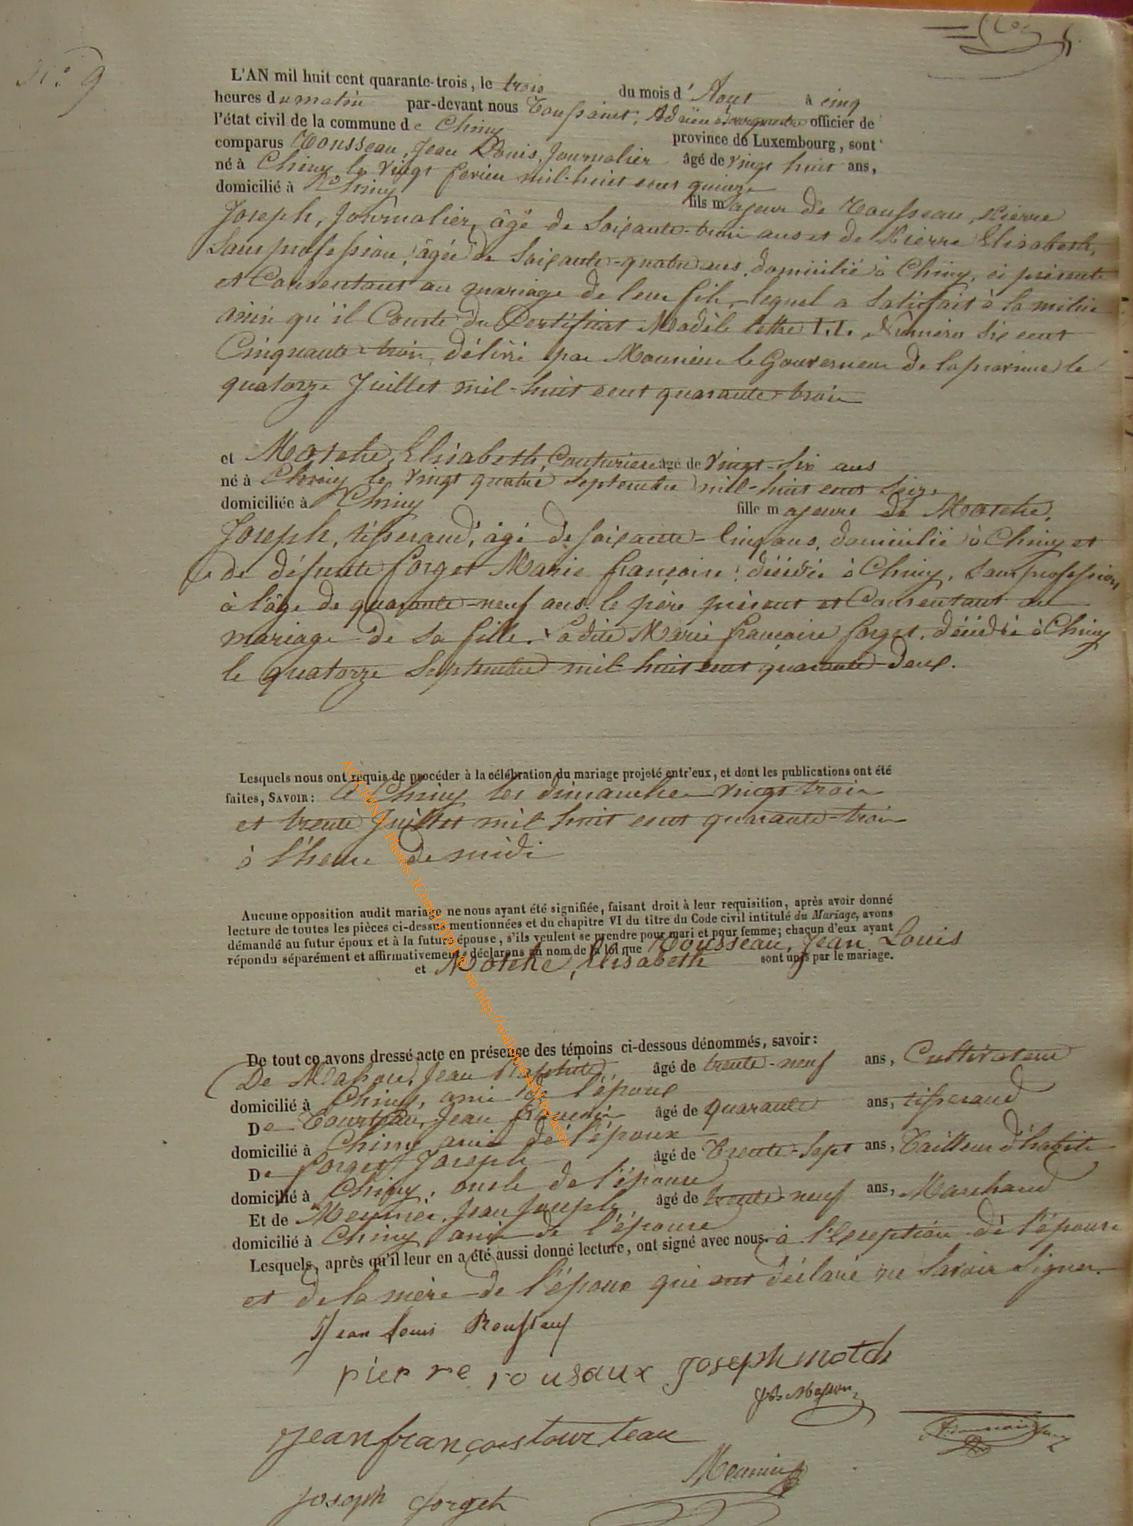 N° 9
L'AN mil huit cent quarante-trois, le trois du mois d'Aout à cinq
heures du matin par-devant nous Toussaint, officier de
l'état civil de la commune de Chiny province de Luxembourg, sont
comparus Rousseau, Jean Louis, Journalier âgé de vingt huit ans,
né à Chiny le vingt fevrier mil-huit cent quinze
domicilié à Chiny fils majeur de Rousseau, Pierre
Joseph, Journalier, âgé de soixante-trois ans et de Pierre Elisabeth,
sans profession, âgée de soixante-quatre ans, domicilié à Chiny, ci présents
et Consentant au mariage de leur fils, lequel a satisfait à la milice
ainsi qu'il Conste du Certificat Modèle lettre numero six cent
Cinquante-trois, délivré par Monsieur le Gouverneur de la province le
quatorze Juillet mil-huit cent quarante-trois
et Motche, Elisabeth, Couturiere âgé de vingt-six ans
né à Chiny le vingt quatre septembre mil-huit cent seize
domiciliée à Chiny fille majeure de Motche,
Joseph, tisserand, âgé de soixante-cinq ans, domicilié à Chiny et
de défunte Forget Marie françoise, décédée à Chiny, sans profession,
à l'âge de quarante-neuf ans, le père présent et Consentant au
mariage de sa fille. Ladite Marie françoise forget, décédée à Chiny
le quatorze Septembre mil huit cent quarante-deux.
Lesquels nous ont requis de procéder à la célébration du mariage projeté entr'eux, et dont les publications ont été
faites, SAVOIR: à Chiny les dimanches vingt trois
et trente Juillet mil huit cent quarante-trois
à l'heure de midi
Aucune opposition audit mariage ne nous ayant été signifiée, faisant droit à leur requisition, après avoir donné
lecture de toutes les pièces ci-dessus mentionnées et du chapitre VI du titre du Code civil intitulé du Mariage, avons
démandé au futur époux et à la future épouse, s'ils veulent se prendre pour mari et pour femme; chacun d'eux ayant
répondu séparément et affirmativement, déclarons au nom de la loi que Rousseau, Jean Louis
et Motche, Elisabeth sont unis par le mariage.
De tout ce avons dressé acte en présence des témoins ci-dessous dénommés, savoir:
De Masson, Jean Baptiste, âgé de trente-neuf ans, Cultivateur
domicilié à Chiny, ami de l'époux
De Tourteau, Jean françois âgé de quarante ans, tisserand
domicilié à Chiny ami de l'époux
De Forget Joseph âgé de trente-sept ans, Tailleur d'habits
domicilié à Chiny, oncle de l'épouse
Et de Jean Joseph, âgé de trente-neuf ans, Marchand
domicilié à Chiny ami de l'épouse
Lesquels, après qu'il leur en a été aussi donné lecture, ont signé avec nous. à l'exception de l'épouse
et de la mère de l'époux qui ont déclaré ne savoir signer.
Jean louis Rousseau
pierre rousaux Joseph motch
Jb Masson
Jean françois tourteau
Joseph forget